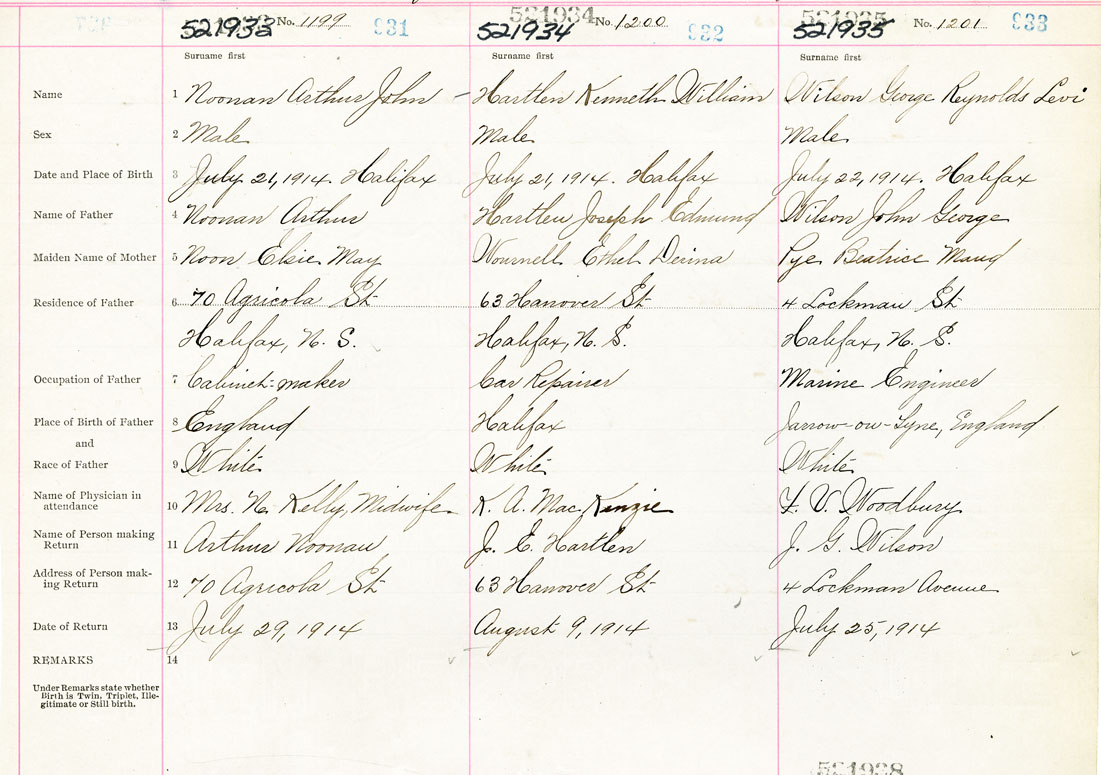 521933 No. 1199 931 521934 521934 No. 1200 932 521935 521935 No. 1201 933
Surname first Surname first Surname first
Name 1 Noonan Arthur John – Hartlen Kenneth William Wilson George Reynolds Levi
Sex 2 Male Male Male
Date and Place of Birth 3 July 21, 1914. Halifax July 21, 1914. Halifax July 22, 1914. Halifax
Name of Father 4 Noonan Arthur Hartlen Joseph Edmund Wilson John George
Maiden Name of Mother 5 Noon Elsie May Ethel Pye Beatrice Maud
Residence of Father 6 70 Agricola St 63 Hanover St 4 Lockman St
Halifax, N. S. Halifax, N. S. Halifax, N. S.
Occupation of Father 7 Cabinet-maker Car Repairer Marine Engineer
Place of Birth of Father 8 England Halifax Jarrow-on-Tyne, England
and
Race of Father 9 White White White
Name of Physician in
attendance 10 Mrs. N. Kelly, Midwife K. A. Mac Kenzie F. V. Woodbury
Name of Person making
Return 11 Arthur Noonan J. E. Hartlen J. G. Wilson
Address of Person mak-
ing Return 12 70 Agricola St 63 Hanover St 4 Lockman Avenue
Date of Return 13 July 29, 1914 August 9, 1914 July 25, 1914
REMARKS 14
Under Remarks state whether
Birth is Twin, Triplet, Ille-
gitimate or Still birth.
521938